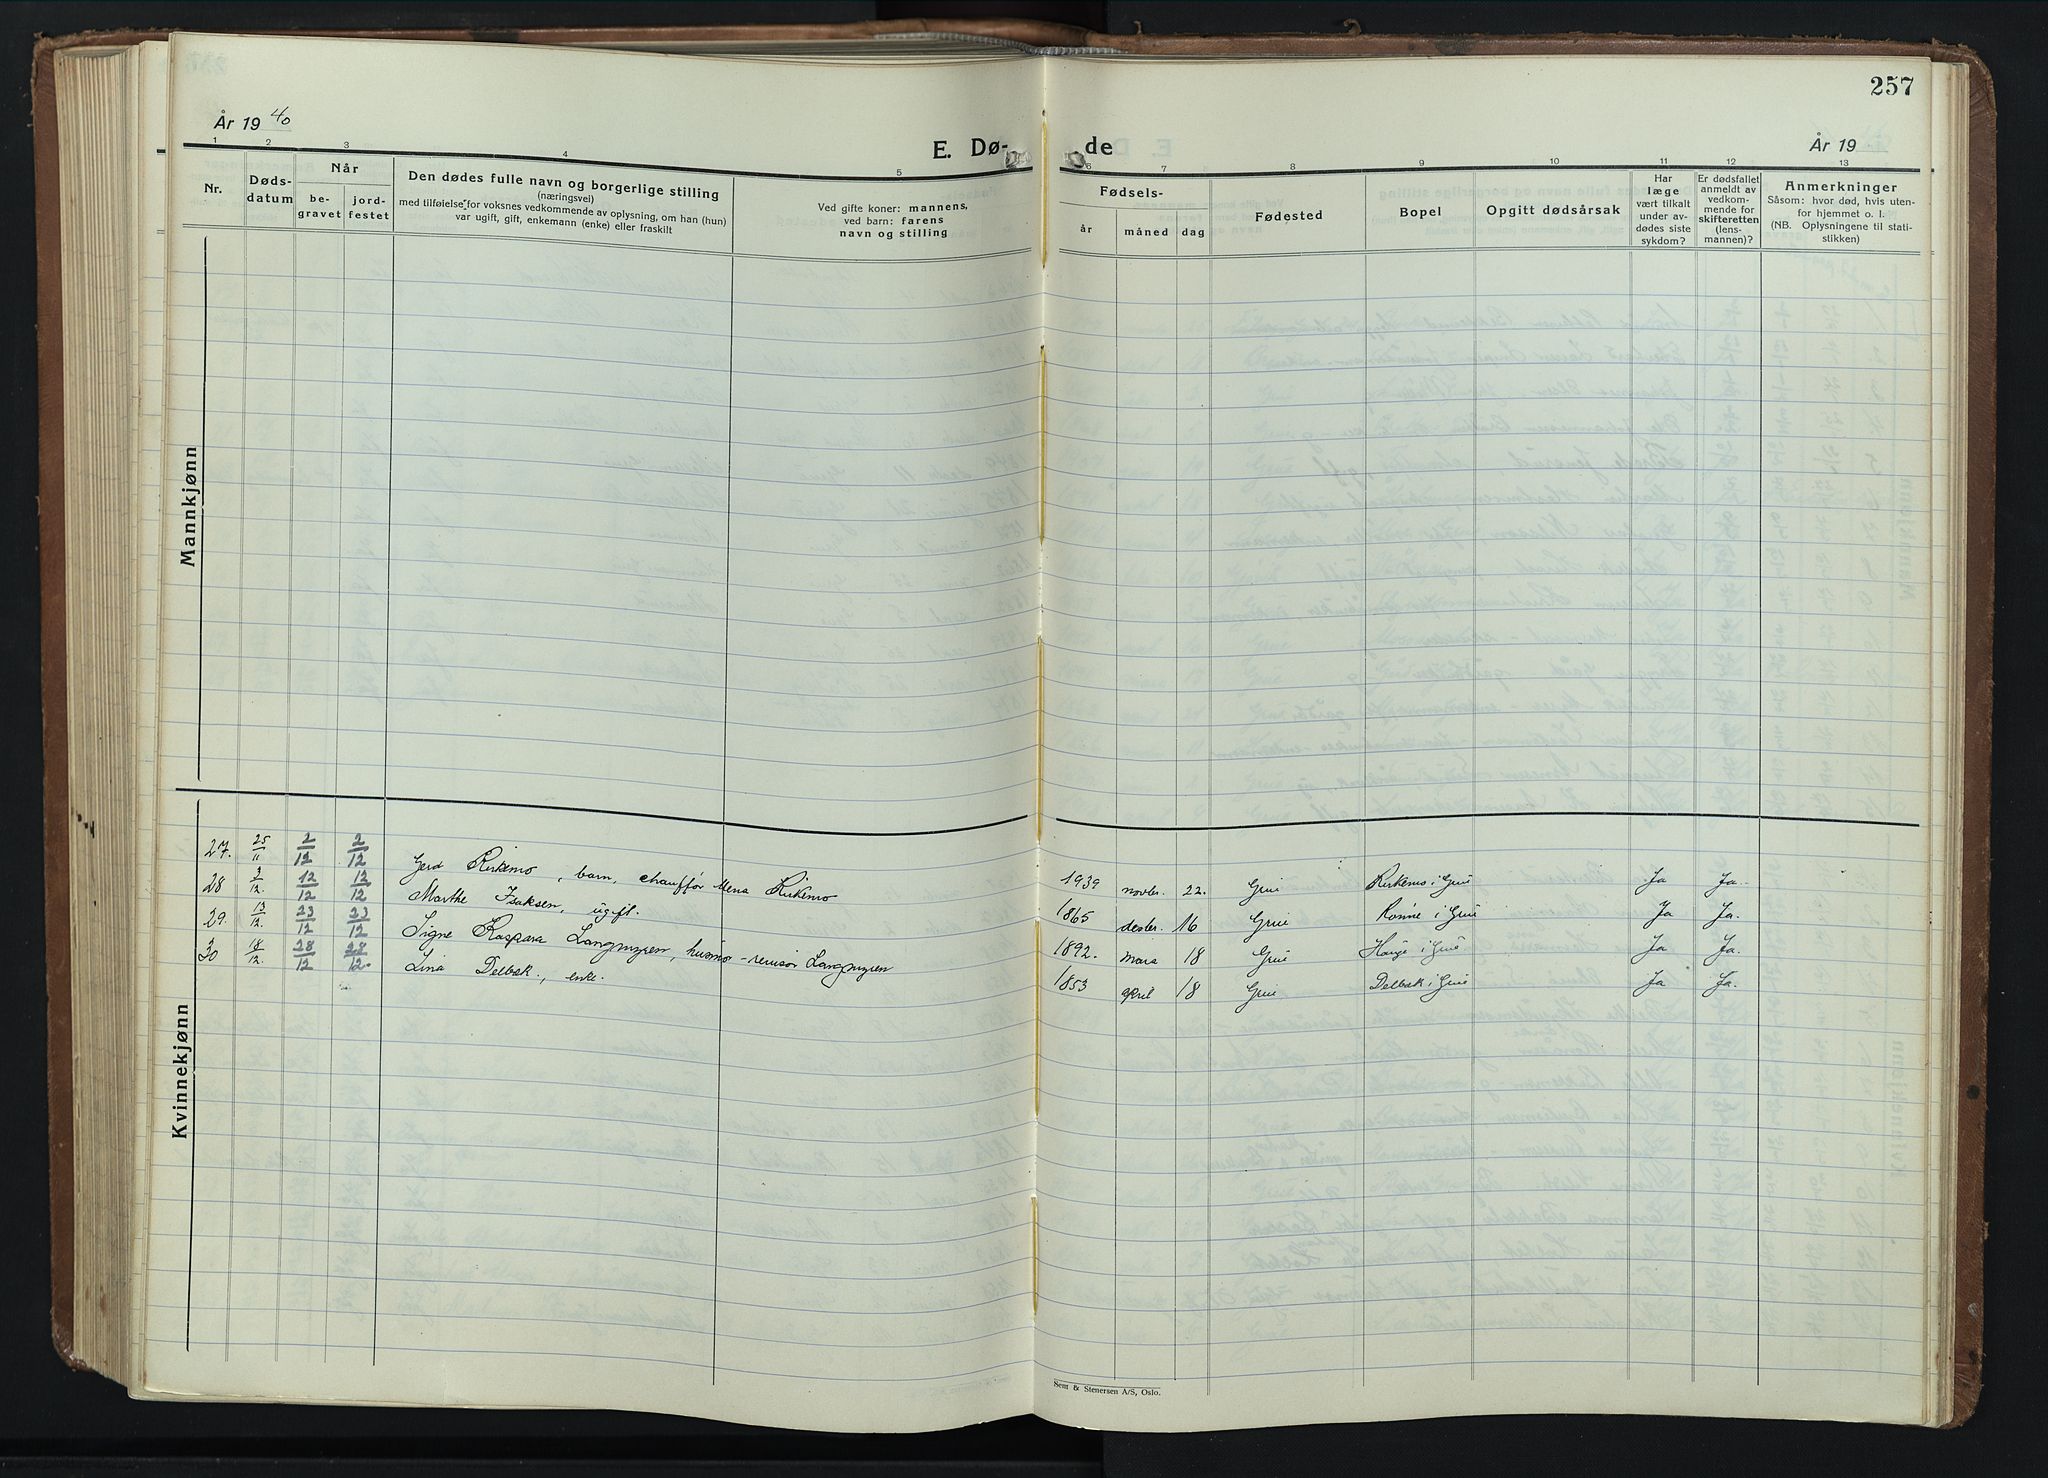 257
År 19 40
E. Dø-
de
År 19
1 2 3 4 5 6 7 8 9 10 11 12 13
Nr.
Døds-
datum
Når
be-
gravet
jord-
festet
Den dødes fulle navn og borgerlige stilling
(næringsvei)
med tilføielse for voksnes vedkommende av oplysning, om han (hun)
var ugift, gift, enkemann (enke) eller fraskilt
Ved gifte koner: mannens,
ved barn: farens
navn og stilling
Fødsels-
år
måned
dag
Fødested
Bopel
Opgitt dødsårsak
Har
læge
vært tilkalt
under av-
dødes siste
sykdom?
Er dødsfallet
anmeldt av
vedkom-
mende for
skifteretten
(lens-
mannen)?
Anmerkninger
Såsom: hvor død, hvis uten-
for hjemmet o. l.
(NB. Oplysningene til stati-
stikken)
Mannkjønn
Kvinnekjønn
27. 25/11 2/12 2/12 Gerd Kirkemo, barn, chauffør Mena Kirkemo 1939 novbr. 22. Grue Kirkemo i Grue Ja Ja.
28 9/12. 12/12 12/12 Marthe Isaksen, ugift. 1865 desbr. 16 Grue i Grue Ja Ja.
29. 13/12. 23/12 23/12 Signe Kaspara Langmyren, husmor - Langmyren 1892. mars 18 Grue i Grue Ja Ja.
30 18/12. 28/12 28/12. Lina Delbek., enke. 1853 april 18 Grue Delbek i Grue Ja Ja.
Sem & Stenersen A/S, Oslo.